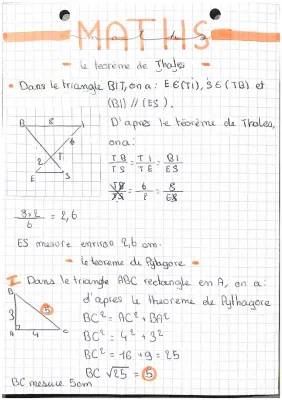 MATHS
- le teorème de Thales -
• Dans le triangle BIT, on a : E∈(TI), S∈(TB) et
(BI) // (ES).
B 8 I
6
2 T
E S
D'apres le téorème de Thales,
on a :
TB/TS = TI/TE = BI/ES
TB/TS = 6/2 = 8/ES
8×2/6 = 2,6
ES mesure environ 2,6 cm.
- le teoreme de Pytagore -
I Dans le triangle ABC rectangle en A, on a :
B
3 5
A 4 C
d'apres le theoreme de Pythagore
BC² = AC² + BA²
BC² = 4² + 3²
BC² = 16 + 9 = 25
BC √25 = 5
BC mesure 5cm